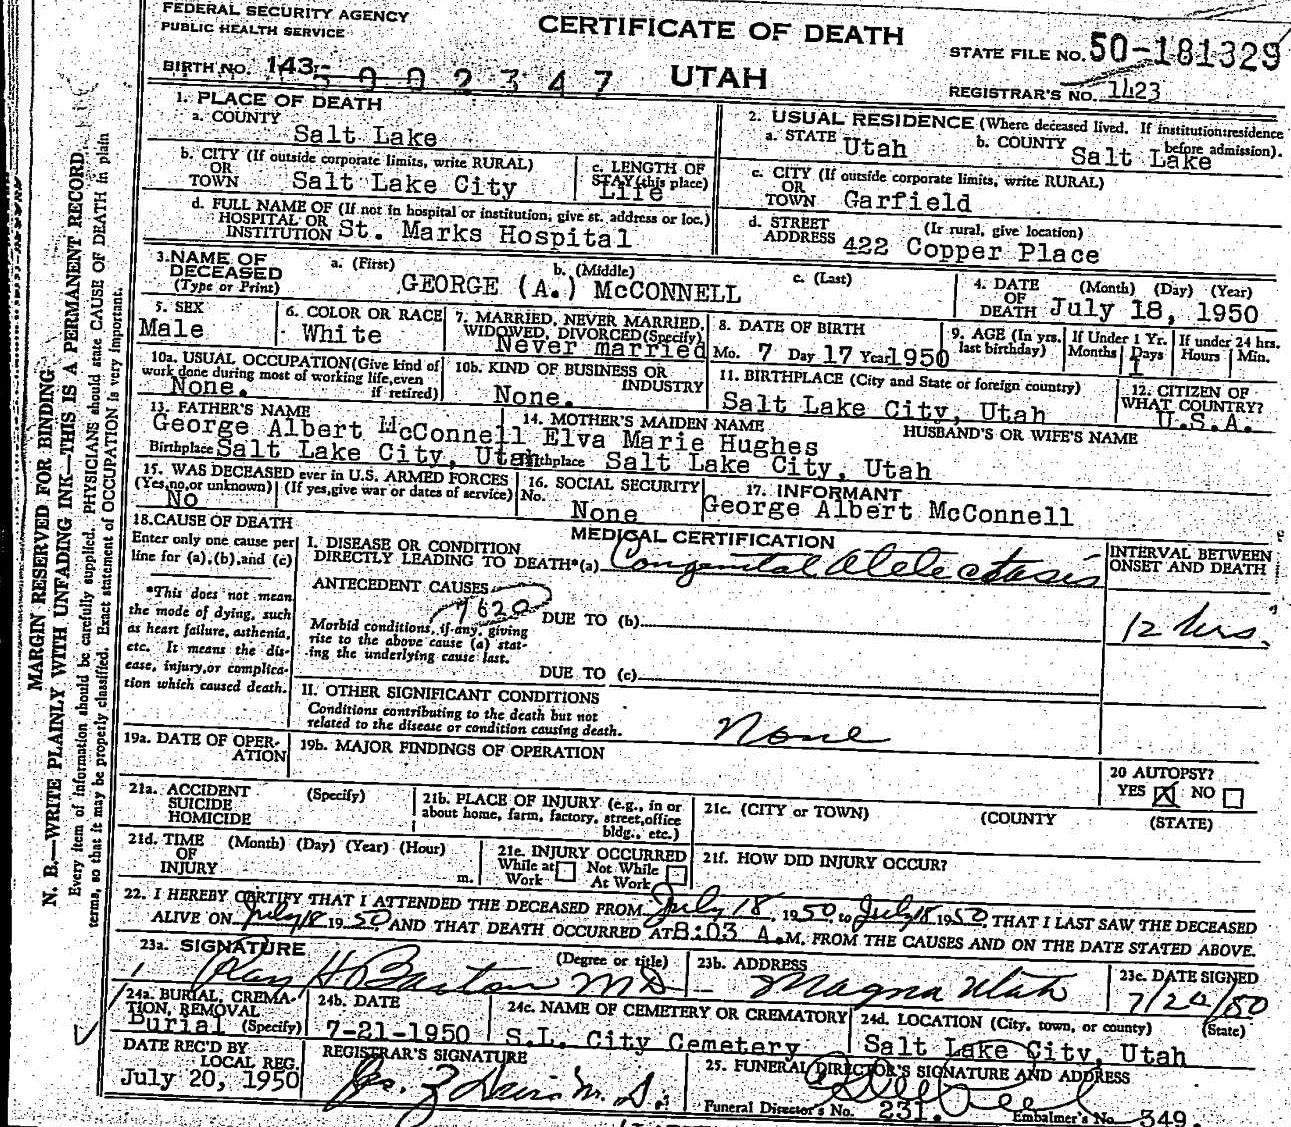 FEDERAL SECURITY AGENCY
PUBLIC HEALTH SERVICE
CERTIFICATE OF DEATH
UTAH
STATE FILE NO. 50-181329
BIRTH NO. 143- 5 0 0 2 3 4 7
REGISTRAR'S NO. 1423
1. PLACE OF DEATH
a. COUNTY Salt Lake
2. USUAL RESIDENCE (Where deceased lived. If institution: residence before admission).
a. STATE Utah b. COUNTY Salt Lake
b. CITY (If outside corporate limits, write RURAL) OR TOWN Salt Lake City
c. LENGTH OF STAY (this place) Life
c. CITY (If outside corporate limits, write RURAL) OR TOWN Garfield
d. FULL NAME OF (If not in hospital or institution, give st. address or loc.) HOSPITAL OR INSTITUTION St. Marks Hospital
d. STREET ADDRESS (If rural, give location) 422 Copper Place
3. NAME OF DECEASED (Type or Print)
a. (First) b. (Middle) c. (Last)
GEORGE (A.) McCONNELL
4. DATE OF DEATH (Month) (Day) (Year) July 18, 1950
5. SEX Male
6. COLOR OR RACE White
7. MARRIED, NEVER MARRIED, WIDOWED, DIVORCED (Specify) Never married
8. DATE OF BIRTH Mo. 7 Day 17 Year 1950
9. AGE (In yrs. last birthday) If Under 1 Yr. Months Days 1 If under 24 hrs. Hours Min.
10a. USUAL OCCUPATION (Give kind of work done during most of working life, even if retired) None.
10b. KIND OF BUSINESS OR INDUSTRY None.
11. BIRTHPLACE (City and State or foreign country) Salt Lake City, Utah
12. CITIZEN OF WHAT COUNTRY? U.S.A.
13. FATHER'S NAME George Albert McConnell
Birthplace Salt Lake City, Utah
14. MOTHER'S MAIDEN NAME Elva Marie Hughes
Birthplace Salt Lake City, Utah
HUSBAND'S OR WIFE'S NAME
15. WAS DECEASED ever in U.S. ARMED FORCES
(Yes, no, or unknown) (If yes, give war or dates of service)
No
16. SOCIAL SECURITY No. None
17. INFORMANT George Albert McConnell
18. CAUSE OF DEATH
Enter only one cause per line for (a), (b), and (c)
*This does not mean the mode of dying, such as heart failure, asthenia, etc. It means the disease, injury, or complication which caused death.
MEDICAL CERTIFICATION
I. DISEASE OR CONDITION DIRECTLY LEADING TO DEATH*(a) Congenital Atelectasis
INTERVAL BETWEEN ONSET AND DEATH
12 hrs.
ANTECEDENT CAUSES
7620
Morbid conditions, if any, giving rise to the above cause (a) stating the underlying cause last.
DUE TO (b)
DUE TO (c)
II. OTHER SIGNIFICANT CONDITIONS
Conditions contributing to the death but not related to the disease or condition causing death.
None
19a. DATE OF OPERATION
19b. MAJOR FINDINGS OF OPERATION
20 AUTOPSY? YES X NO
21a. ACCIDENT SUICIDE HOMICIDE (Specify)
21b. PLACE OF INJURY (e.g., in or about home, farm, factory, street, office bldg., etc.)
21c. (CITY or TOWN) (COUNTY (STATE)
21d. TIME OF INJURY (Month) (Day) (Year) (Hour) m.
21e. INJURY OCCURRED While at Work Not While At Work
21f. HOW DID INJURY OCCUR?
22. I HEREBY CERTIFY THAT I ATTENDED THE DECEASED FROM July 18, 1950 to July 18 1950, THAT I LAST SAW THE DECEASED
ALIVE ON July 18 1950, AND THAT DEATH OCCURRED AT 8:03 A.M. FROM THE CAUSES AND ON THE DATE STATED ABOVE.
23a. SIGNATURE (Degree or title)
Ray H Barton MD
23b. ADDRESS Magna Utah
23c. DATE SIGNED 7/20/50
24a. BURIAL, CREMATION, REMOVAL (Specify) Burial
24b. DATE 7-21-1950
24c. NAME OF CEMETERY OR CREMATORY S.L. City Cemetery
24d. LOCATION (City, town, or county) (State) Salt Lake City, Utah
DATE REC'D BY LOCAL REG. July 20, 1950
REGISTRAR'S SIGNATURE
M.D.
25. FUNERAL DIRECTOR'S SIGNATURE AND ADDRESS
Funeral Director's No. 231. Embalmer's No. 349.
MARGIN RESERVED FOR BINDING
N. B.—WRITE PLAINLY WITH UNFADING INK—THIS IS A PERMANENT RECORD.
Every item of information should be carefully supplied. PHYSICIANS should state CAUSE OF DEATH in plain
terms, so that it may be properly classified. Exact statement of OCCUPATION is very important.